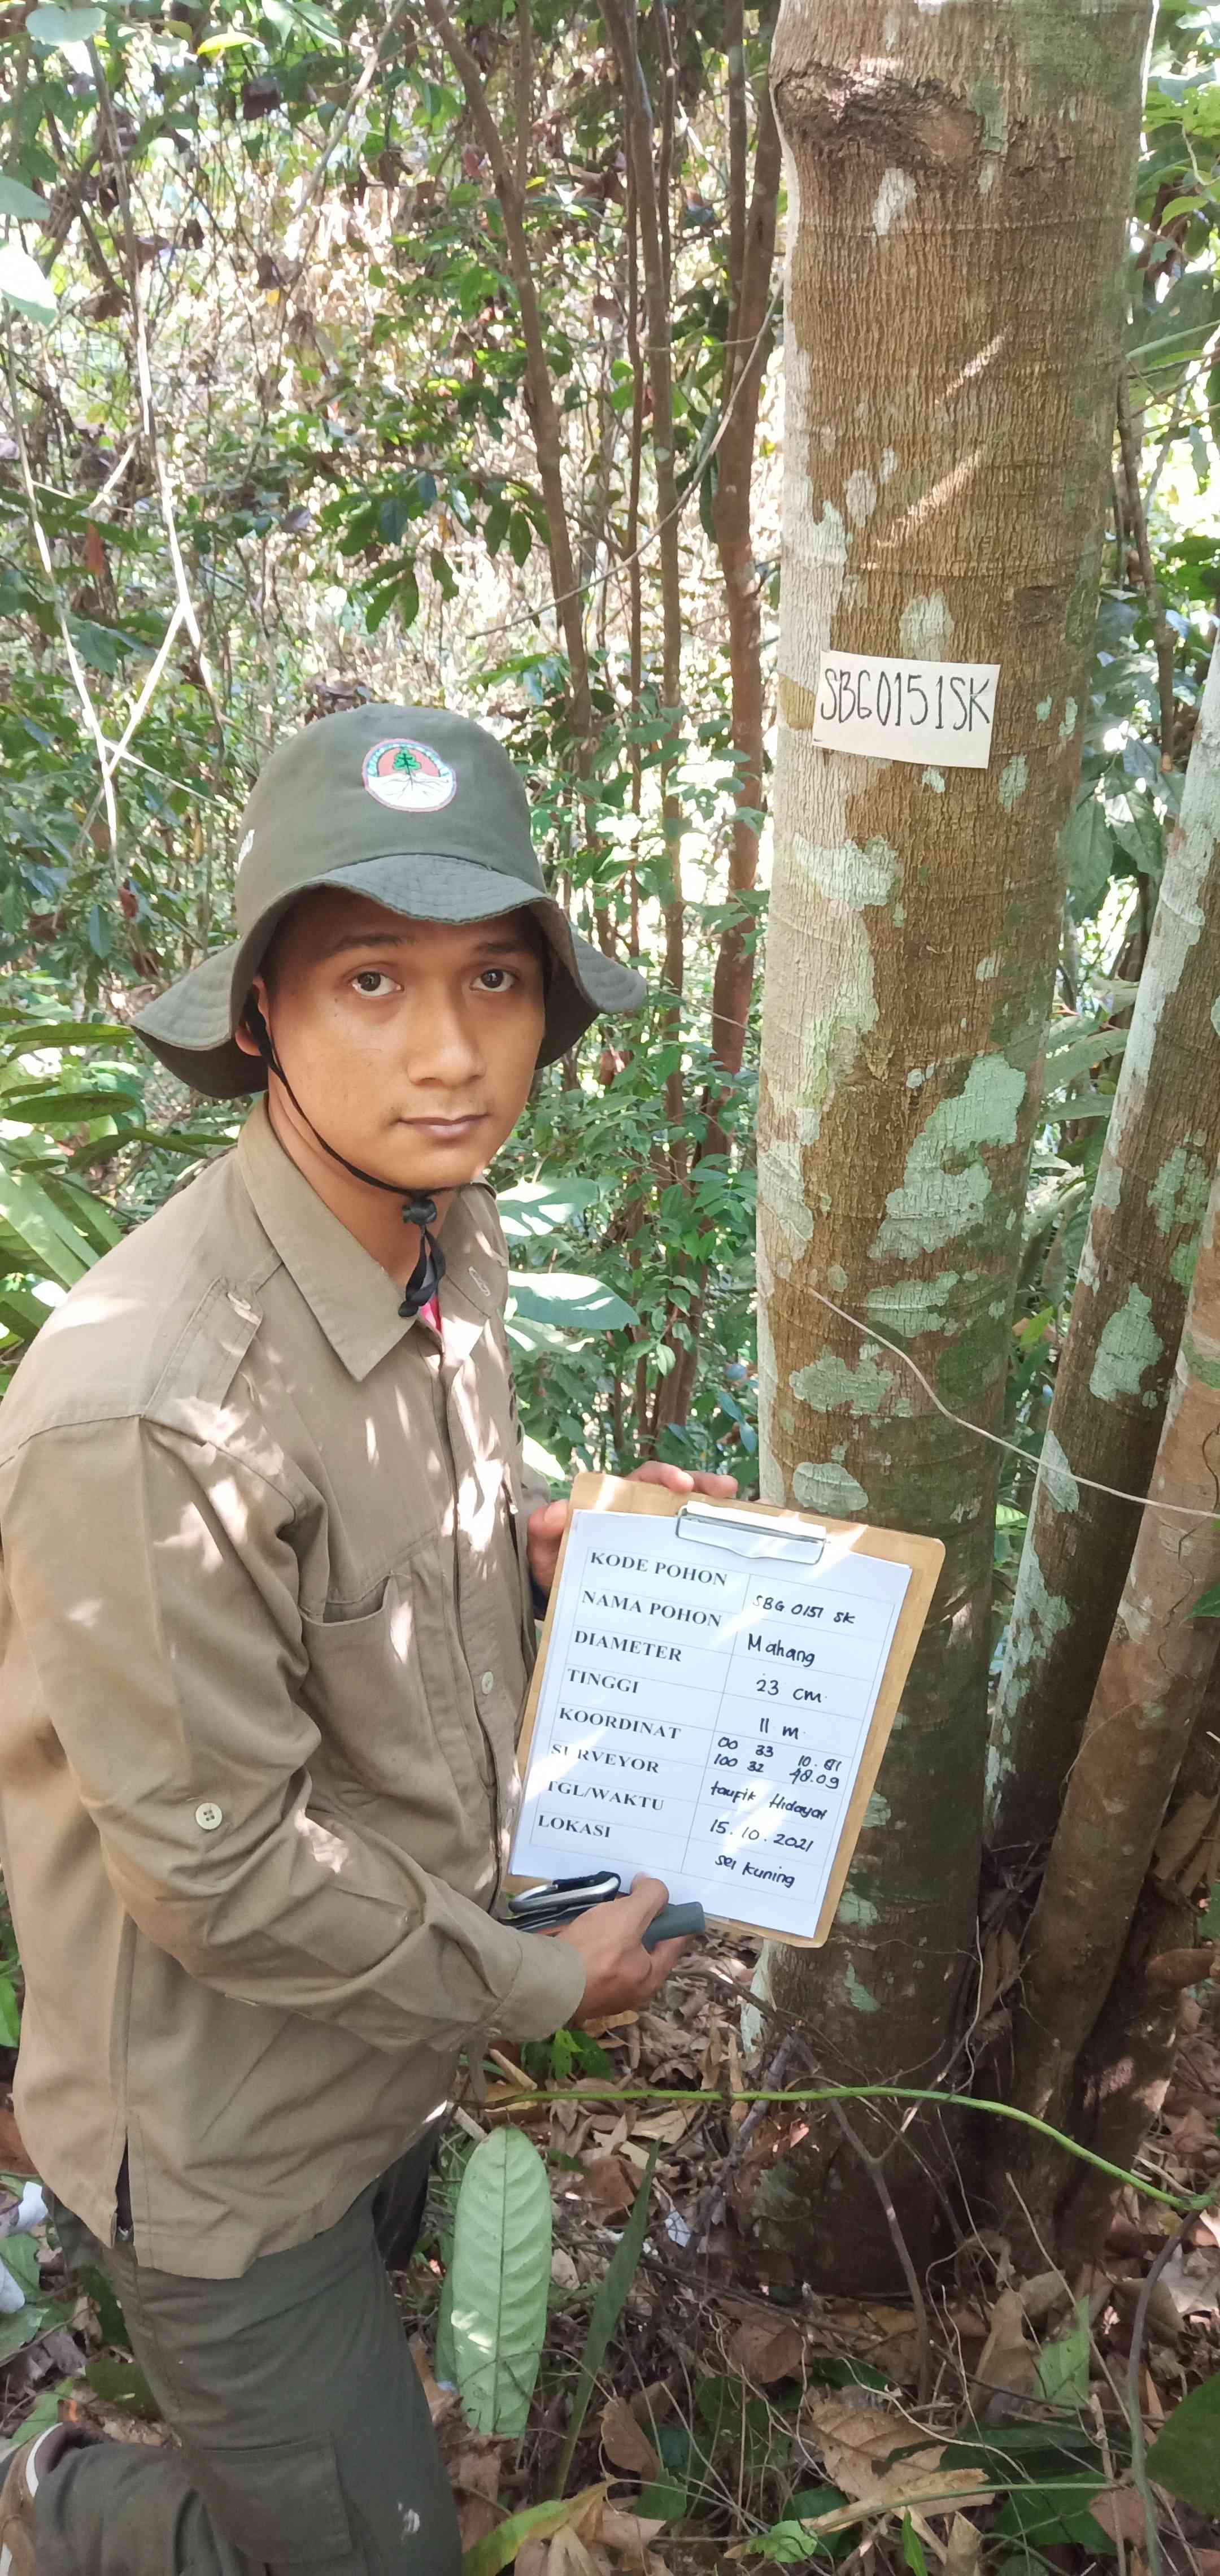 SBG0151SK
KODE POHON SBG 0151 SK
NAMA POHON Mahang
DIAMETER 23 cm
TINGGI 11 m
KOORDINAT 00 33
100 32 48.09
SURVEYOR taufik Hidayat
TGL/WAKTU 15.10.2021
LOKASI sei kuning